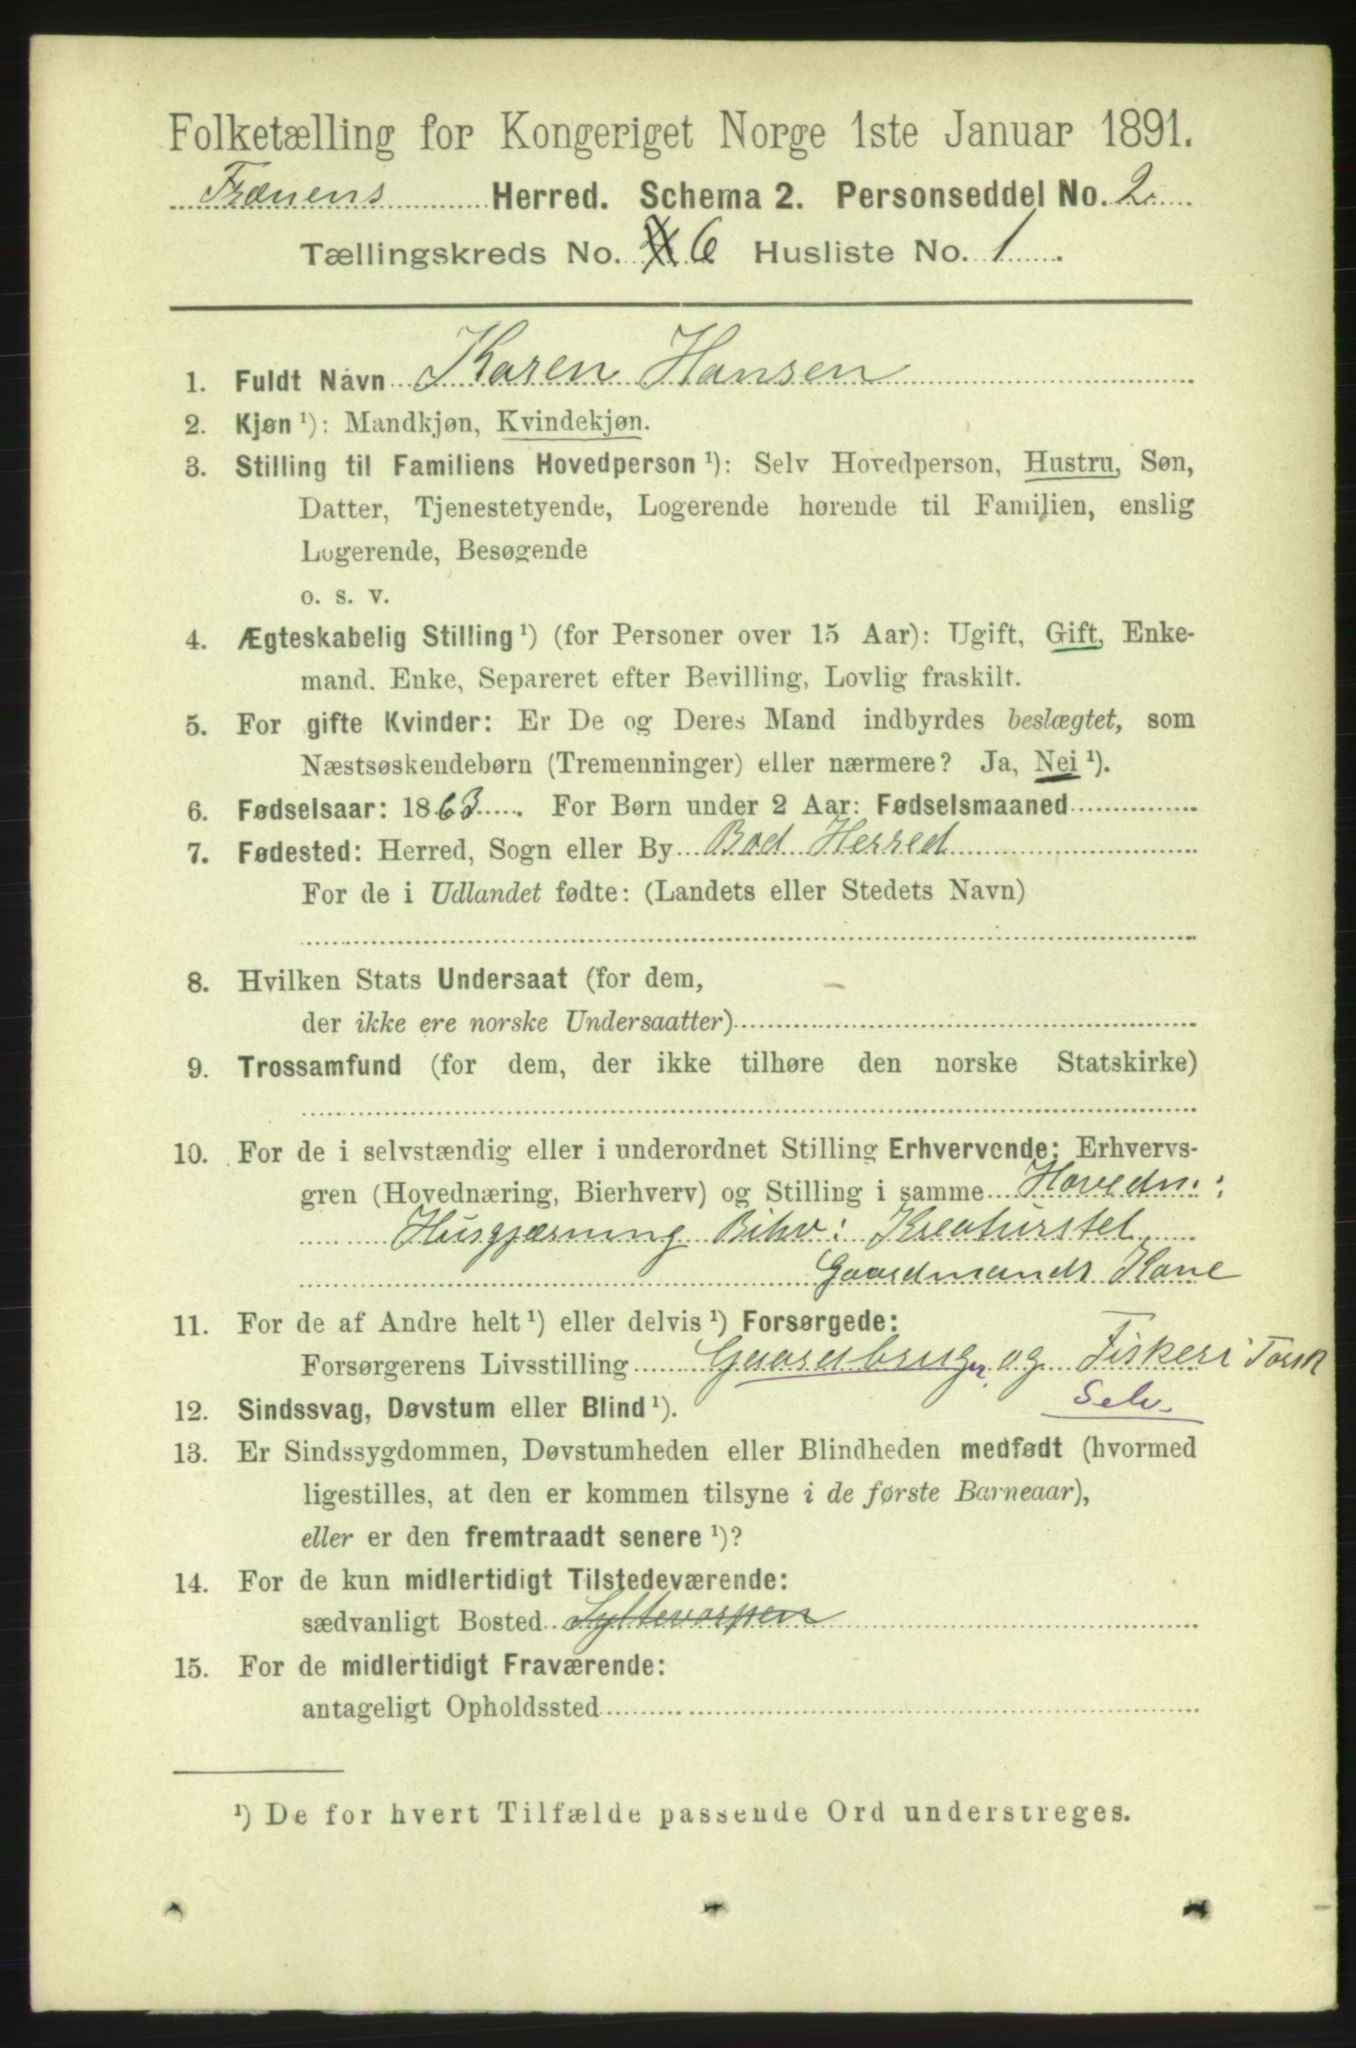 Folketælling for Kongeriget Norge 1ste Januar 1891.
Frænens Herred. Schema 2. Personseddel No. 2.
Tællingskreds No. 6 Husliste No. 1.
1. Fuldt Navn Karen Hansen
2. Kjøn ¹): Mandkjøn, Kvindekjøn.
3. Stilling til Familiens Hovedperson ¹): Selv Hovedperson, Hustru, Søn,
Datter, Tjenestetyende, Logerende hørende til Familien, enslig
Logerende, Besøgende
o. s. v.
4. Ægteskabelig Stilling ¹) (for Personer over 15 Aar): Ugift, Gift, Enke-
mand, Enke, Separeret efter Bevilling, Lovlig fraskilt.
5. For gifte Kvinder: Er De og Deres Mand indbyrdes beslægtet, som
Næstsøskendebørn (Tremenninger) eller nærmere? Ja, Nei ¹).
6. Fødselsaar: 1863. For Børn under 2 Aar: Fødselsmaaned
7. Fødested: Herred, Sogn eller By Bod Herred
For de i Udlandet fødte: (Landets eller Stedets Navn)
8. Hvilken Stats Undersaat (for dem,
der ikke ere norske Undersaatter)
9. Trossamfund (for dem, der ikke tilhøre den norske Statskirke)
10. For de i selvstændig eller i underordnet Stilling Erhvervende: Erhvervs-
gren (Hovednæring, Bierhverv) og Stilling i samme Hovedn.:
Husgjærning Bihv: Kreaturstel
Gaardmands Kone
11. For de af Andre helt ¹) eller delvis ¹) Forsørgede:
Forsørgerens Livsstilling Gaardbruger og Fiskeri Torsk
Selv.
12. Sindssvag, Døvstum eller Blind ¹).
13. Er Sindssygdommen, Døvstumheden eller Blindheden medfødt (hvormed
ligestilles, at den er kommen tilsyne i de første Barneaar),
eller er den fremtraadt senere ¹)?
14. For de kun midlertidigt Tilstedeværende:
sædvanligt Bosted Syltevarpen
15. For de midlertidigt Fraværende:
antageligt Opholdssted
¹) De for hvert Tilfælde passende Ord understreges.